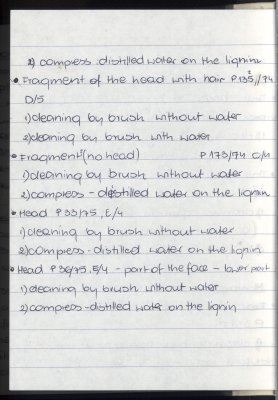 2) compress distilled water on the lignin
• Fragment of the head with hair P 135/74
D/5
1) cleaning by brush without water
2) cleaning by brush with water
• Fragment (no head) P 173/74 C/1
1) cleaning by brush without water
2) compress - destilled water on the lignin
• Head P 33/75, E/4
1) cleaning by brush without water
2) compress - distilled water on the lignin
• Head P 36/75, E/4 - part of the face - lower part
1) cleaning by brush without water
2) compress - distilled water on the lignin